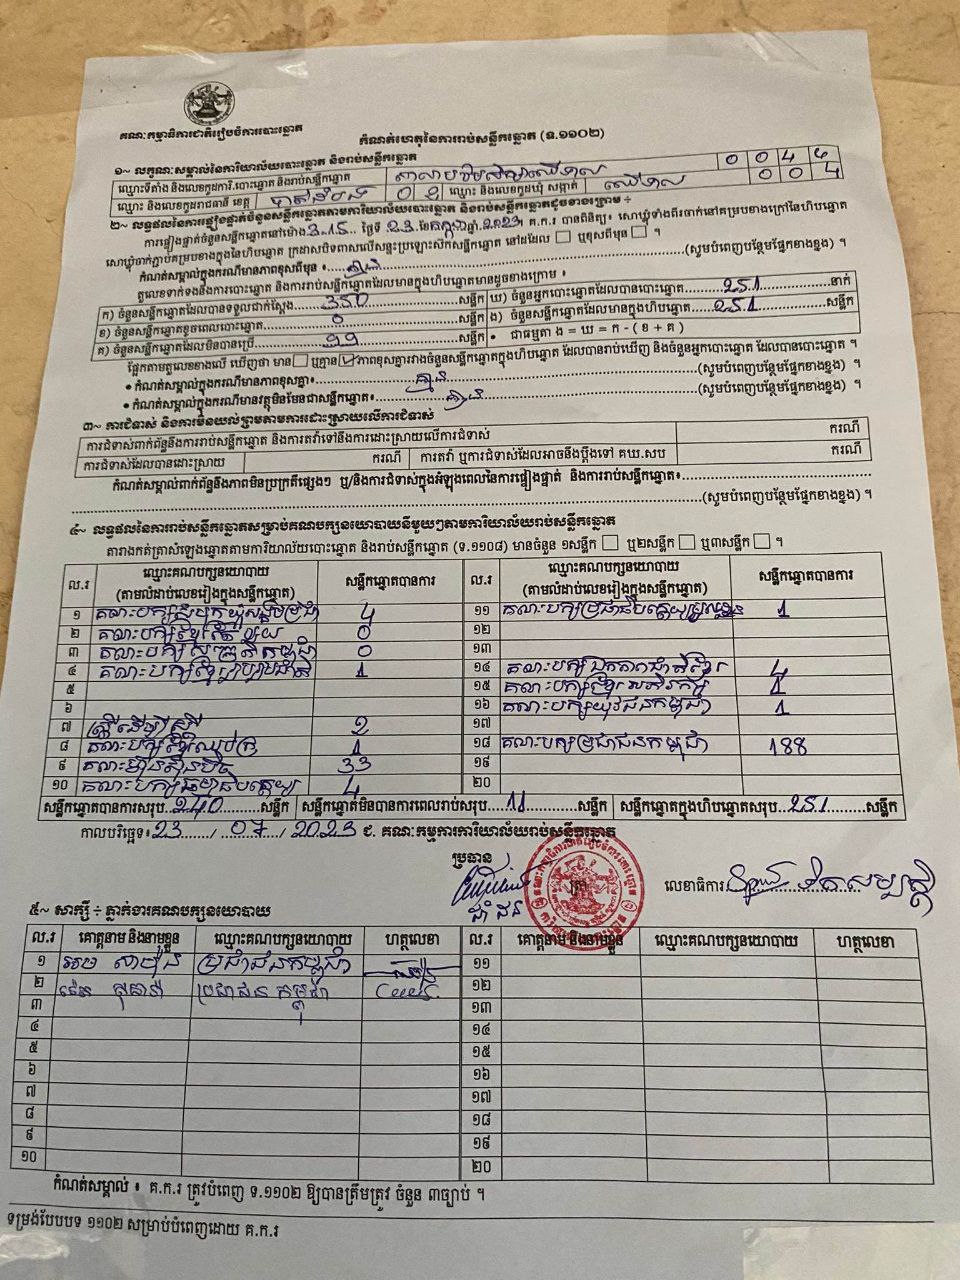 គណៈកម្មាធិការជាតិរៀបចំការបោះឆ្នោត
កំណត់ហេតុនៃការរាប់សន្លឹកឆ្នោត (ទ.១១០២)
១~ លក្ខណៈសម្គាល់នៃការិយាល័យបោះឆ្នោត និងរាប់សន្លឹកឆ្នោត
ឈ្មោះទីតាំង និងលេខកូដការិ.បោះឆ្នោត និងរាប់សន្លឹកឆ្នោត
ឈ្មោះ និងលេខកូដរាជធានី ខេត្ត បាត់ដំបង 0 2 ឈ្មោះ និងលេខកូដឃុំ សង្កាត់
២~ លទ្ធផលនៃការផ្ទៀងផ្ទាត់ចំនួនសន្លឹកឆ្នោតតាមការិយាល័យបោះឆ្នោត និងរាប់សន្លឹកឆ្នោតដូចខាងក្រោម ÷
ការផ្ទៀងផ្ទាត់ចំនួនសន្លឹកឆ្នោតនៅម៉ោង 3:15 ថ្ងៃទី 23 ខែកក្កដា ឆ្នាំ 2023 គ.ក.រ បានពិនិត្យ៖ សោឃ្លុំទាំងពីរចាក់នៅគម្របខាងក្រៅនៃហិបឆ្នោត
សោឃ្លុំចាក់ភ្ជាប់គម្របខាងក្នុងនៃហិបឆ្នោត ក្រដាសបិទពាសលើសន្ទះប្រឡោះស៊កសន្លឹកឆ្នោត នៅដដែល ☐ ឬខុសពីមុន ☐ ។
កំណត់សម្គាល់ក្នុងករណីមានភាពខុសពីមុន ៖ គ្មាន (សូមបំពេញបន្ថែមផ្នែកខាងខ្នង) ។
តួលេខទាក់ទងនឹងការបោះឆ្នោត និងការរាប់សន្លឹកឆ្នោតដែលមានក្នុងហិបឆ្នោតមានដូចខាងក្រោម ៖
ក) ចំនួនសន្លឹកឆ្នោតដែលបានទទួលជាក់ស្តែង 350 សន្លឹក ឃ) ចំនួនអ្នកបោះឆ្នោតដែលបានបោះឆ្នោត 251 នាក់
ខ) ចំនួនសន្លឹកឆ្នោតខូចពេលបោះឆ្នោត 0 សន្លឹក ង) ចំនួនសន្លឹកឆ្នោតដែលមានក្នុងហិបឆ្នោត 251 សន្លឹក
គ) ចំនួនសន្លឹកឆ្នោតដែលមិនបានប្រើ 99 សន្លឹក • ជាធម្មតា ង = ឃ = ក - ( ខ + គ )
ផ្អែកតាមតួលេខខាងលើ ឃើញថា មាន ☐ ឬគ្មាន ☑ ភាពខុសគ្នារវាងចំនួនសន្លឹកឆ្នោតក្នុងហិបឆ្នោត ដែលបានរាប់ឃើញ និងចំនួនអ្នកបោះឆ្នោត ដែលបានបោះឆ្នោត ។
• កំណត់សម្គាល់ក្នុងករណីមានភាពខុសគ្នា៖ គ្មាន (សូមបំពេញបន្ថែមផ្នែកខាងខ្នង) ។
• កំណត់សម្គាល់ក្នុងករណីមានវត្ថុមិនមែនជាសន្លឹកឆ្នោត៖ គ្មាន (សូមបំពេញបន្ថែមផ្នែកខាងខ្នង) ។
៣~ ការជំទាស់ និងការមិនយល់ព្រមតាមការដោះស្រាយលើការជំទាស់
ការជំទាស់ពាក់ព័ន្ធនឹងការរាប់សន្លឹកឆ្នោត និងការតវ៉ាទៅនឹងការដោះស្រាយលើការជំទាស់ ករណី
ការជំទាស់ដែលបានដោះស្រាយ ករណី ការតវ៉ា ឬការជំទាស់ដែលអាចនឹងប្តឹងទៅ គឃ.សប ករណី
កំណត់សម្គាល់ពាក់ព័ន្ធនឹងភាពមិនប្រក្រតីផ្សេងៗ ឬ/និងការជំទាស់ក្នុងអំឡុងពេលនៃការផ្ទៀងផ្ទាត់ និងការរាប់សន្លឹកឆ្នោត៖
(សូមបំពេញបន្ថែមផ្នែកខាងខ្នង) ។
៤~ លទ្ធផលនៃការរាប់សន្លឹកឆ្នោតសម្រាប់គណបក្សនយោបាយនីមួយៗតាមការិយាល័យរាប់សន្លឹកឆ្នោត
តារាងកត់ត្រាសំឡេងឆ្នោតតាមការិយាល័យបោះឆ្នោត និងរាប់សន្លឹកឆ្នោត (ទ.១១០៨) មានចំនួន ១សន្លឹក ☐ ឬ២សន្លឹក ☐ ឬ៣សន្លឹក ☐ ។
ល.រ ឈ្មោះគណបក្សនយោបាយ (តាមលំដាប់លេខរៀងក្នុងសន្លឹកឆ្នោត) សន្លឹកឆ្នោតបានការ ល.រ ឈ្មោះគណបក្សនយោបាយ (តាមលំដាប់លេខរៀងក្នុងសន្លឹកឆ្នោត) សន្លឹកឆ្នោតបានការ
១ 4 ១១ 1
២ 0 ១២
៣ 0 ១៣
៤ 1 ១៤ គណៈបក្សឯកភាពជាតិខ្មែរ 4
៥ ១៥ 1
៦ ១៦ គណៈបក្សយុវជនកម្ពុជា 1
៧ ស្រ្តីដើម្បីស្រ្តី 2 ១៧
៨ 1 ១៨ គណៈបក្សប្រជាជនកម្ពុជា 188
៩ 33 ១៩
១០ 4 ២០
សន្លឹកឆ្នោតបានការសរុប 240 សន្លឹក សន្លឹកឆ្នោតមិនបានការពេលរាប់សរុប 11 សន្លឹក សន្លឹកឆ្នោតក្នុងហិបឆ្នោតសរុប 251 សន្លឹក
កាលបរិច្ឆេទ៖ 23 / 07 / 2023 ជ. គណៈកម្មការការិយាល័យរាប់សន្លឹកឆ្នោត
ប្រធាន ត្រា លេខាធិការ
៥~ សាក្សី ÷ ភ្នាក់ងារគណបក្សនយោបាយ
ល.រ គោត្តនាម និងនាមខ្លួន ឈ្មោះគណបក្សនយោបាយ ហត្ថលេខា ល.រ គោត្តនាម និងនាមខ្លួន ឈ្មោះគណបក្សនយោបាយ ហត្ថលេខា
១ ប្រជាជនកម្ពុជា ១១
២ ប្រជាជន កម្ពុជា ១២
៣ ១៣
៤ ១៤
៥ ១៥
៦ ១៦
៧ ១៧
៨ ១៨
៩ ១៩
១០ ២០
កំណត់សម្គាល់ ៖ គ.ក.រ ត្រូវបំពេញ ទ.១១០២ ឱ្យបានត្រឹមត្រូវ ចំនួន ៣ច្បាប់ ។
ទម្រង់បែបបទ ១១០២ សម្រាប់បំពេញដោយ គ.ក.រ